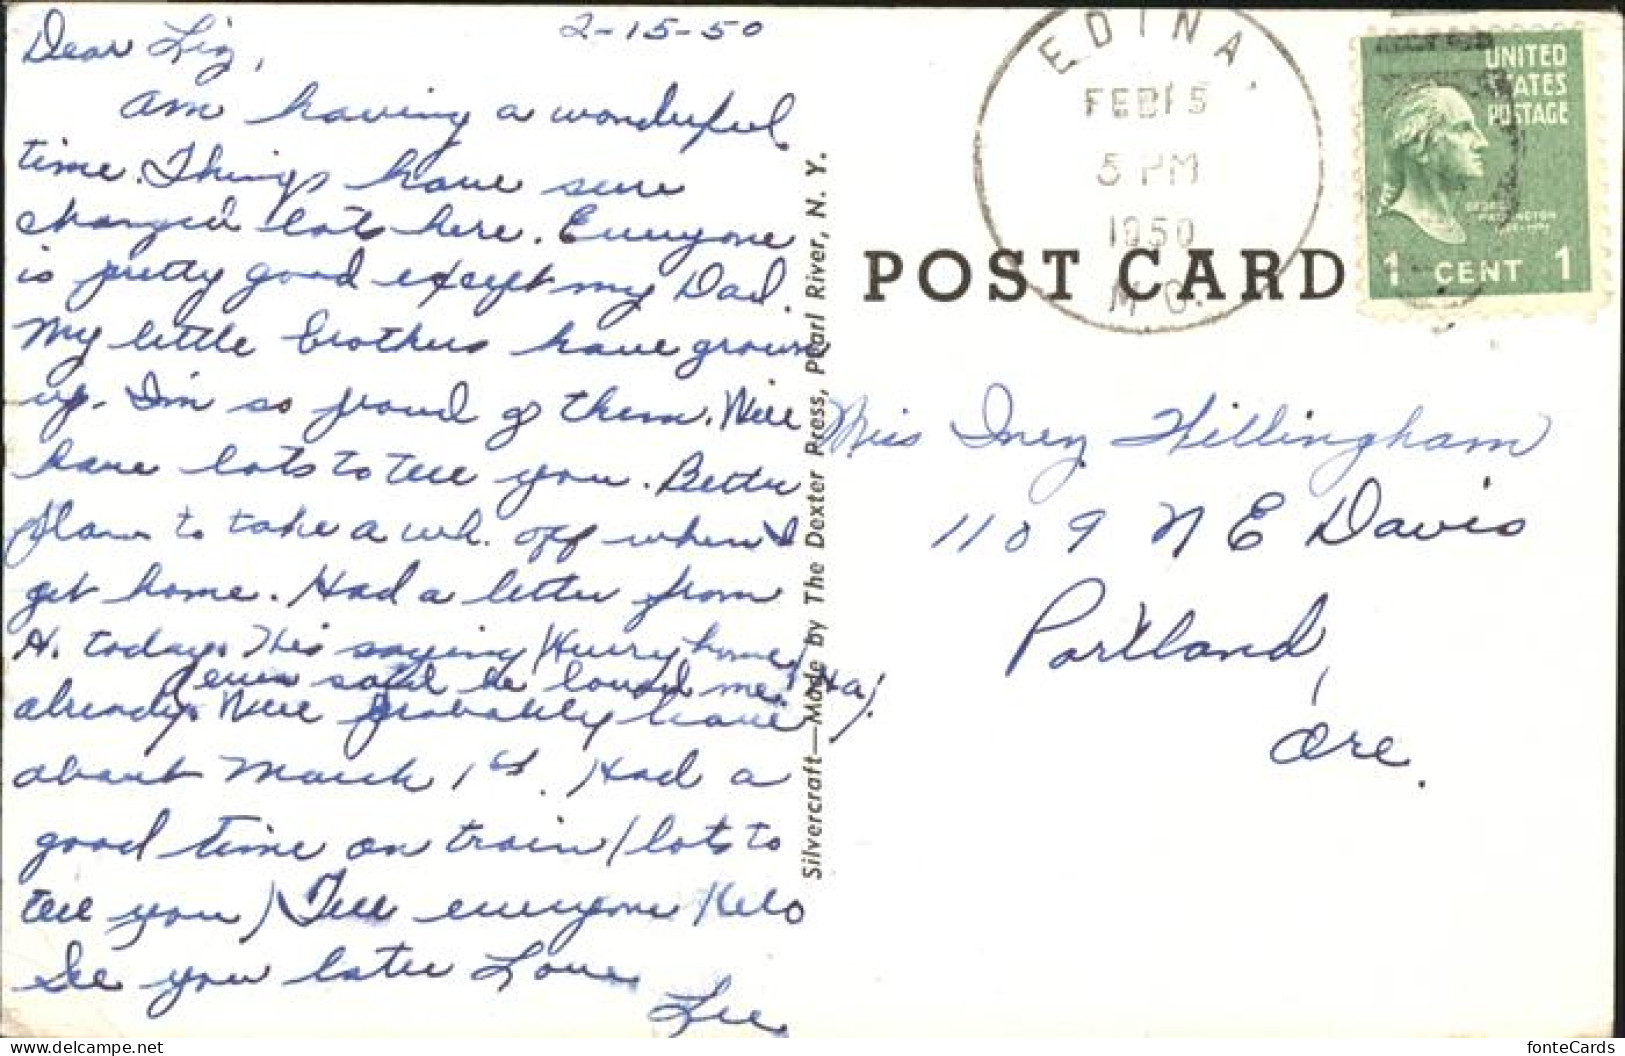 2-15-50
Dear Liz,
am having a wonderful
time. Things have sure
changed lots here. Everyone
is pretty good except my Dad.
My little brothers have grown
up. I'm so proud of them. Will
have lots to tell you. Better
plan to take a wk. off when I
get home. Had a letter from
H. today. He's saying Hurry home!
even said he loved me! (Ha)!
already. Will probably leave
about March 1st. Had a
good time on train (lots to
tell you) Tell everyone Hello
See you later Love
Lee
Silvercraft—Made by The Dexter Press, Pearl River, N. Y.
EDINA.
FEB 15
5 PM
1950
MO.
UNITED
STATES
POSTAGE
GEORGE
WASHINGTON
1 CENT 1
POST CARD
Miss Inez Hillingham
1109 N E Davis
Portland,
Ore.
fonteCards